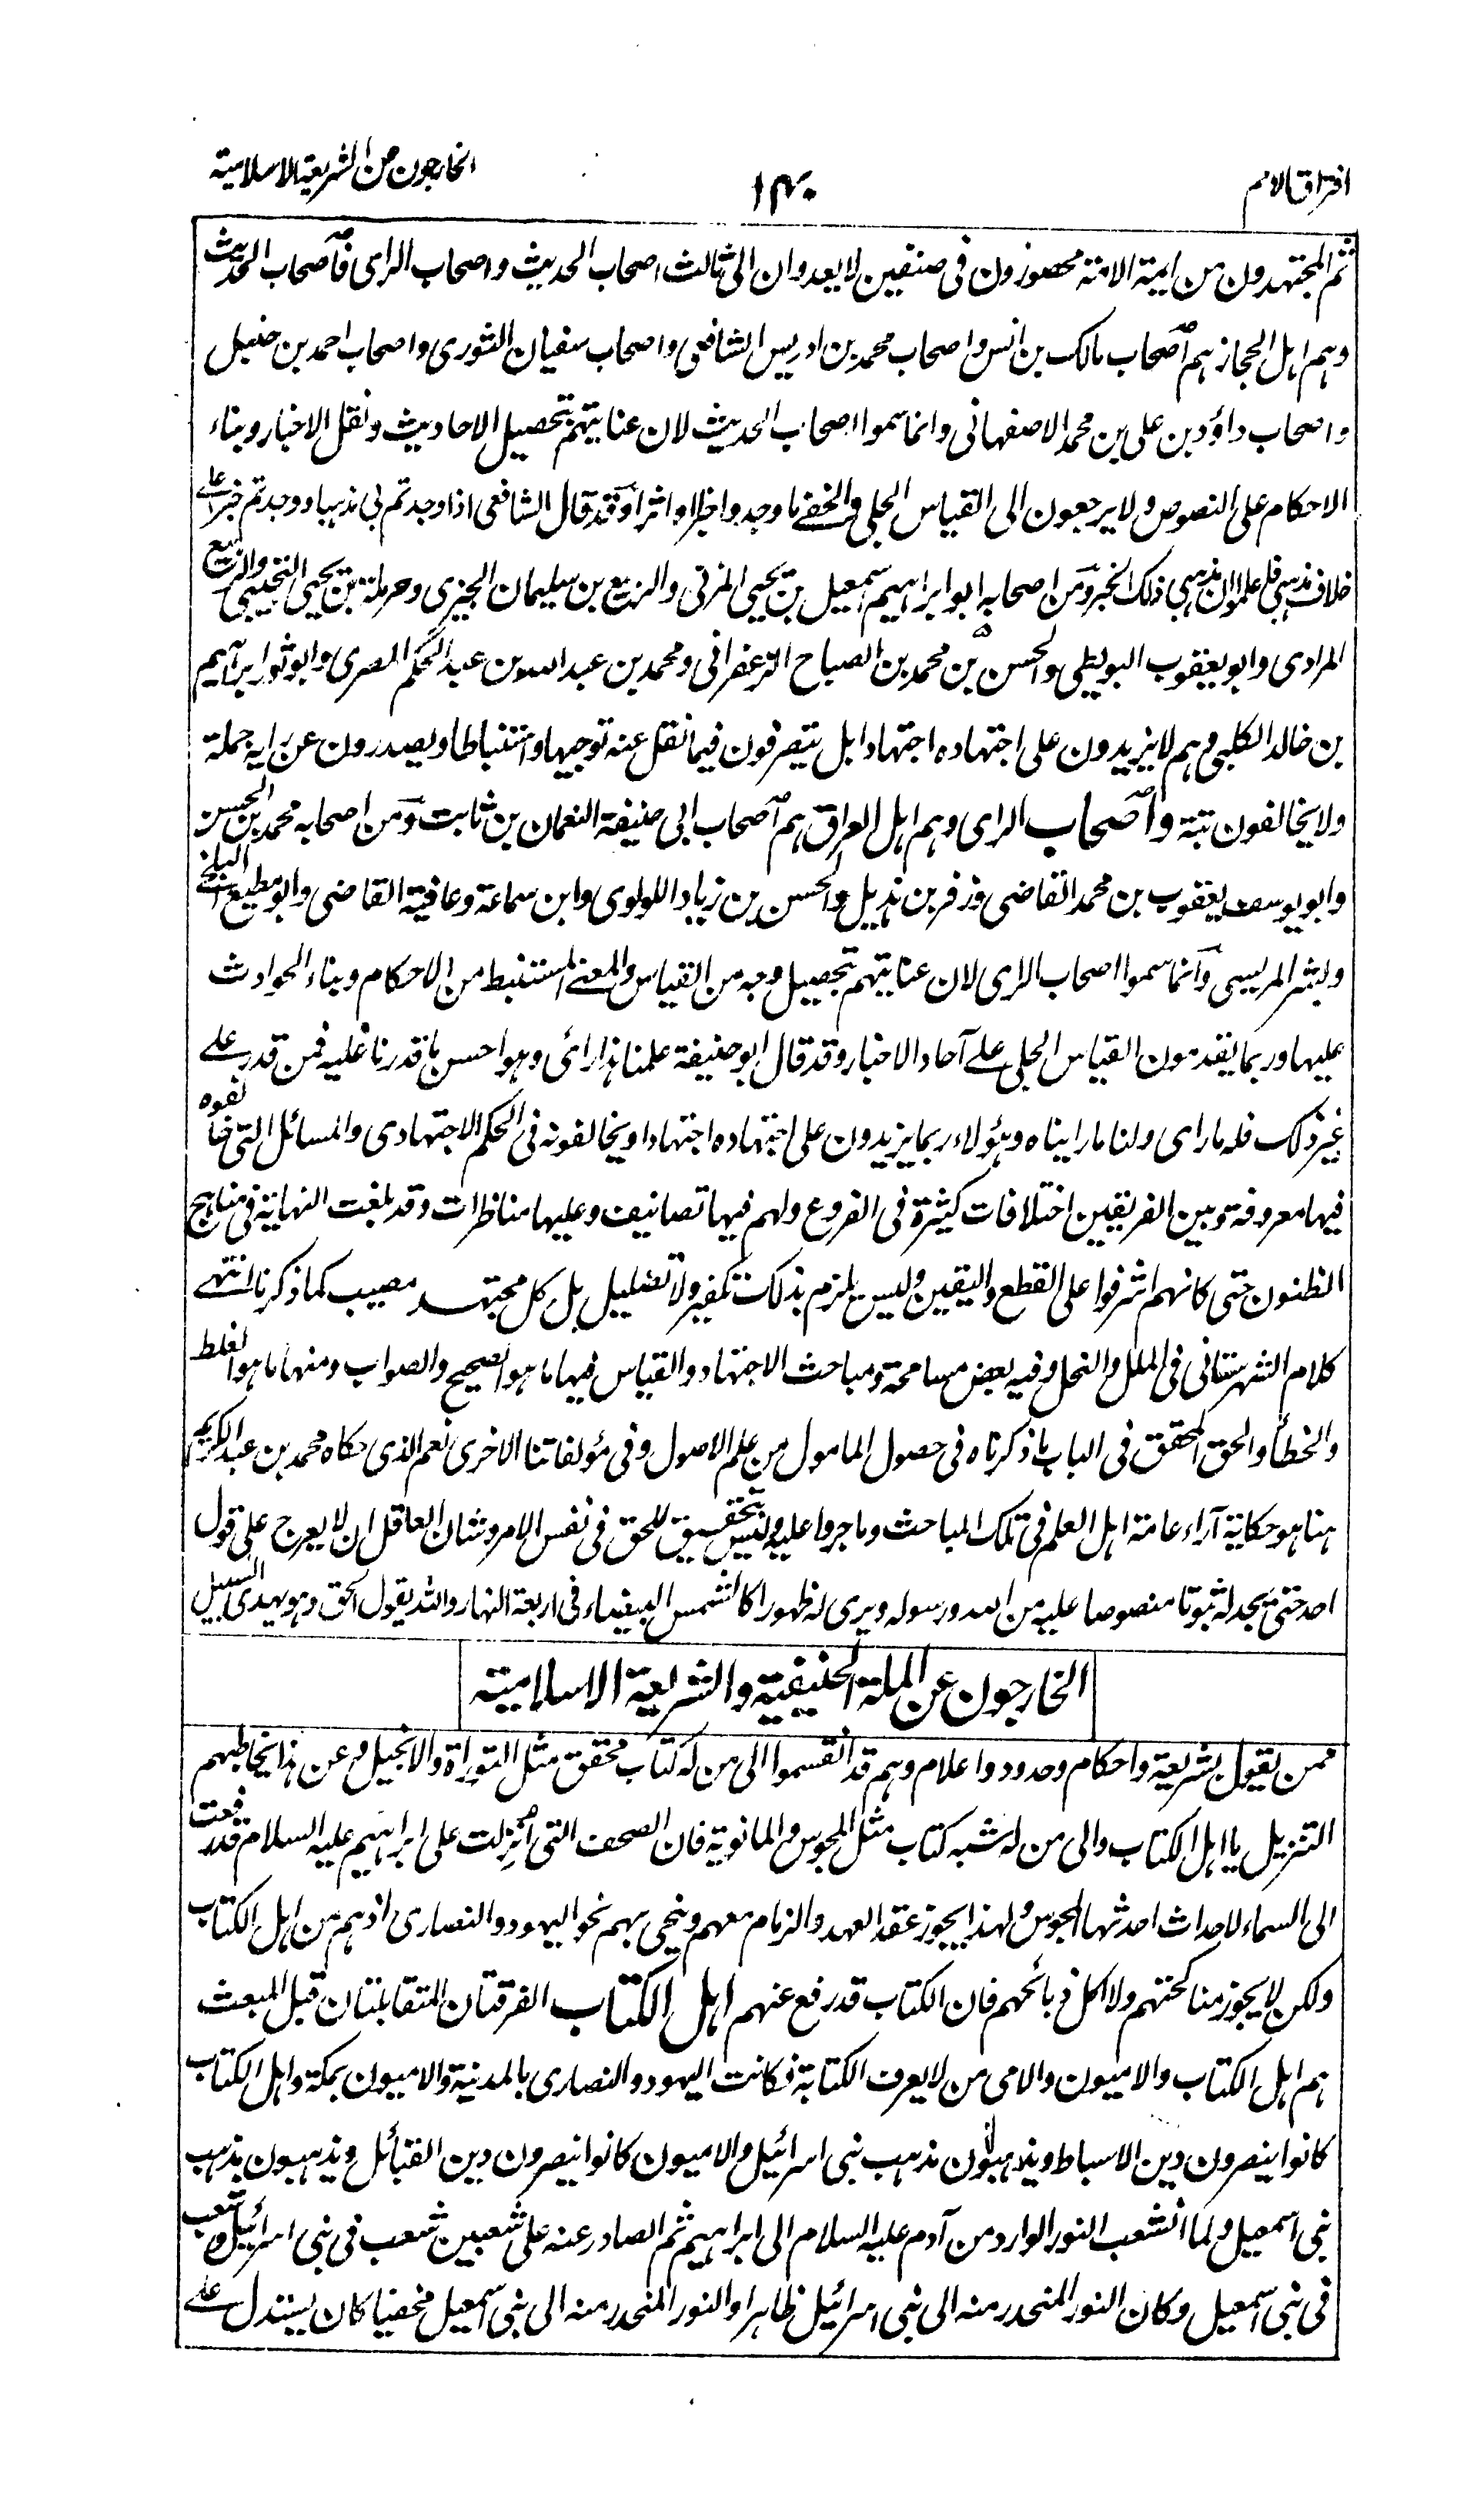 افتراق الامم
١٣٠
الخارجون من الشريعة الاسلامية
ثم المجتهدون من ايمة الامة محصورون فى صنفين لا يعدوان الى ثالث اصحاب الحديث واصحاب الراى فاصحاب الحديث
وهم اهل الحجاز هم اصحاب مالك بن انس واصحاب محمد بن ادريس الشافعى واصحاب سفيان الثورى واصحاب احمد بن حنبل
واصحاب داؤد بن على بن محمد الاصفهانى وانما سموا اصحاب الحديث لان عنايتهم بتحصيل الاحاديث ونقل الاخبار وبناء
الاحكام على النصوص ولا يرجعون الى القياس الجلى والخفى ما وجدوا خبرا او اثرا وقد قال الشافعى اذا وجدتم لى مذهبا ووجدتم خبرا على
خلاف مذهبى فاعلموا ان مذهبى ذلك الخبر ومن اصحابه ابو ابراهيم اسمعيل بن يحيى المزنى والربيع بن سليمان الجيزى وحرملة بن يحيى التجيبى والربيع
المرادى وابو يعقوب البويطى والحسن بن محمد بن الصباح الزعفرانى ومحمد بن عبد الله بن عبد الحكم المصرى وابو ثور ابراهيم
بن خالد الكلبى وهم لا يزيدون على اجتهاده اجتهادا بل يتصرفون فيما نقل عنه توجيها واستنباطا ويصدرون عن رايه جملة
ولا يخالفون بتة واصحاب الراى وهم اهل العراق هم اصحاب ابى حنيفة النعمان بن ثابت ومن اصحابه محمد بن الحسن
وابو يوسف يعقوب بن محمد القاضى وزفر بن هذيل والحسن بن زياد اللولوى وابن سماعة وعافية القاضى وابو مطيع البلخى
وبشر المريسى وانما سموا اصحاب الراى لان عنايتهم بتحصيل وجه من القياس والمعنى المستنبط من الاحكام وبناء الحوادث
عليها وربما يقدمون القياس الجلى على آحاد الاخبار وقد قال ابو حنيفة علمنا هذا رائى وهو احسن ما قدرنا عليه فمن قدر على
غير ذلك فله ما راى ولنا ما رايناه وهؤلاء ربما يزيدون على اجتهاده اجتهادا ويخالفونه فى الحكم الاجتهادى والمسائل التى خالفوه
فيها معروفة وبين الفريقين اختلافات كثيرة فى الفروع ولهم فيها تصانيف وعليها مناظرات وقد بلغت النهاية فى مناهج
الظنون حتى كانهم اشرفوا على القطع واليقين وليس يلزم بذلك تكفير ولا تضليل بل كل مجتهد مصيب كما ذكرنا انتهى
كلام الشهرستانى فى الملل والنحل وفيه بعض مسامحة ومباحث الاجتهاد والقياس فيها ما هو الصحيح والصواب ومنها ما هو الغلط
والخطأ والحق المحقق فى الباب ما ذكرناه فى حصول المامول من علم الاصول وفى مؤلفاتنا الاخرى نعم الذى حكاه محمد بن عبد الكريم
هنا هو حكاية آراء عامة اهل العلم فى تلك المباحث وما جروا عليه وليس بتحقيق للحق فى نفس الامر وشان العاقل ان لا يعرج على قول
احد حتى يجد له ثبوتا منصوصا عليه من الله ورسوله ويرى له ظهورا كالشمس البيضاء فى اربعة النهار والله يقول الحق وهو يهدى السبيل
الخارجون عن الملة الحنيفية والشريعة الاسلامية
ممن يقول بشريعة واحكام وحدود واعلام وهم قد انقسموا الى من له كتاب محقق مثل التوراة والانجيل وعن هذا يخاطبهم
التنزيل يا اهل الكتاب والى من له شبه كتاب مثل المجوس والمانوية فان الصحف التى انزلت على ابراهيم عليه السلام قد رفعت
الى السماء لاحداث احدثها المجوس ولهذا يجوز عقد العهد والزمام معهم وينحى بهم نحو اليهود والنصارى اذ هم من اهل الكتاب
ولكن لا يجوز مناكحتهم ولا اكل ذبائحهم فان الكتاب قد رفع عنهم اهل الكتاب الفرقتان المتقابلتان قبل المبعث
هم اهل الكتاب والاميون والامى من لا يعرف الكتابة فكانت اليهود والنصارى بالمدينة والاميون بمكة واهل الكتاب
كانوا ينصرون دين الاسباط ويذهبون مذهب بنى اسرائيل والاميون كانوا ينصرون دين القبائل ويذهبون مذهب
بنى اسمعيل ولما انشعب النور الوارد من آدم عليه السلام الى ابراهيم ثم الصادر عنه على شعبين شعب فى بنى اسرائيل وشعب
فى بنى اسمعيل وكان النور المنحدر منه الى بنى اسرائيل ظاهرا والنور المنحدر منه الى بنى اسمعيل مخفيا كان يستدل على